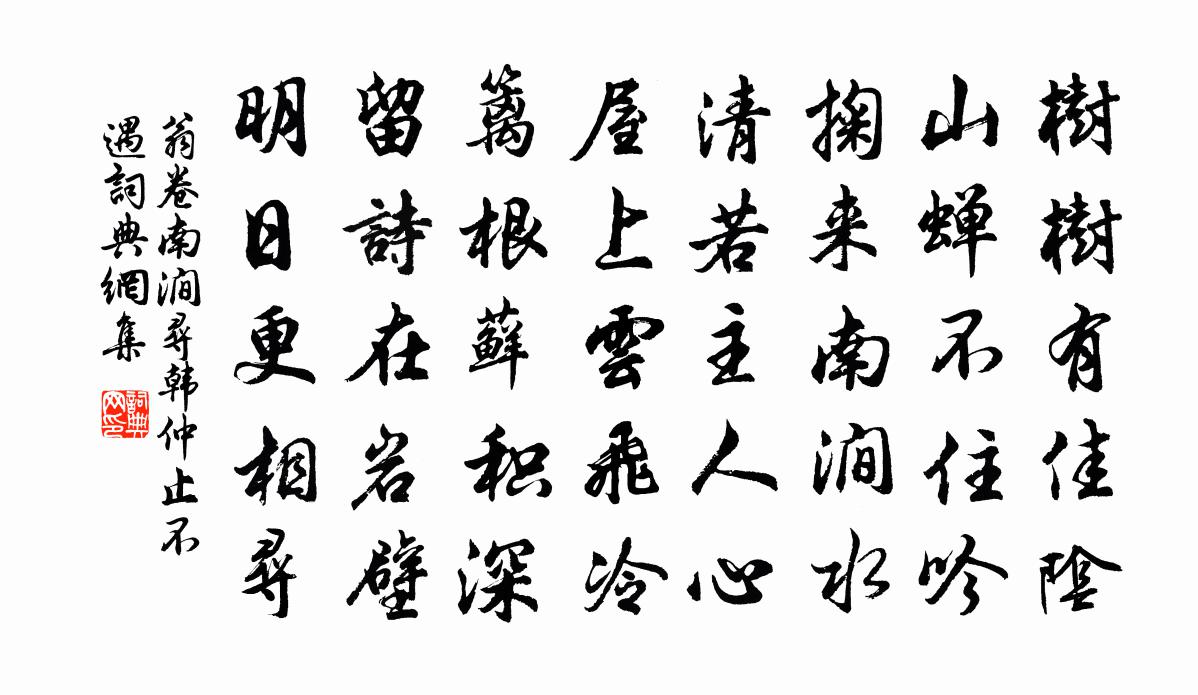 樹樹有佳陰
山蝉不住吟
掬来南澗水
清若主人心
屋上雲飛冷
篱根蘚积深
留詩在岩壁
明日更相尋
翁卷南澗尋韩仲止不
遇詞典網集
詞典网印